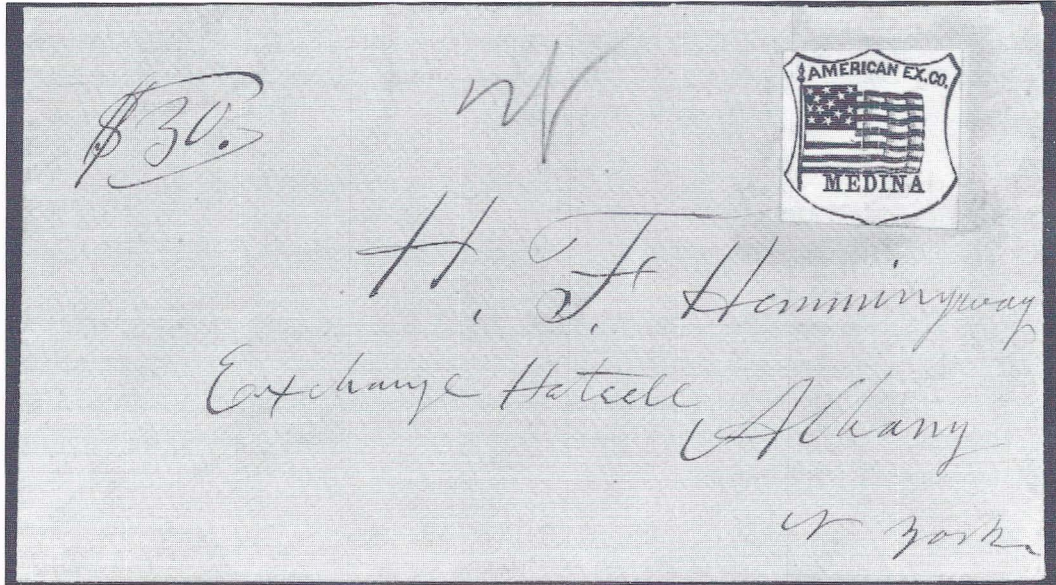 $30.
AMERICAN EX. CO.
MEDINA
H. F. Hemmingway
Exchange Hotell
Albany
N York